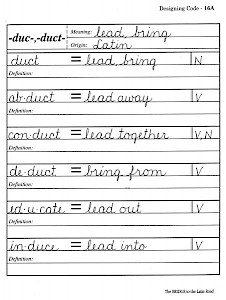 Designing Code - 16A
-duc-,-duct- Meaning: lead, bring
Origin: Latin
duct = lead, bring N
Definition:
ab·duct = lead away V
Definition:
con·duct = lead together V,N
Definition:
de·duct = bring from V
Definition:
ed·u·cate = lead out V
Definition:
in·duce = lead into V
Definition:
The BRIDGE to the Latin Root!